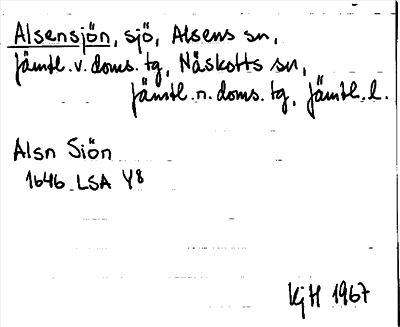 Alsensjön, sjö, Alsens sn,
Jämtl. v. doms. tg, Näskotts sn,
Jämtl. n. doms. tg, Jämtl. l.
Alsn Siön
1646 LSA Y8
KjH 1967